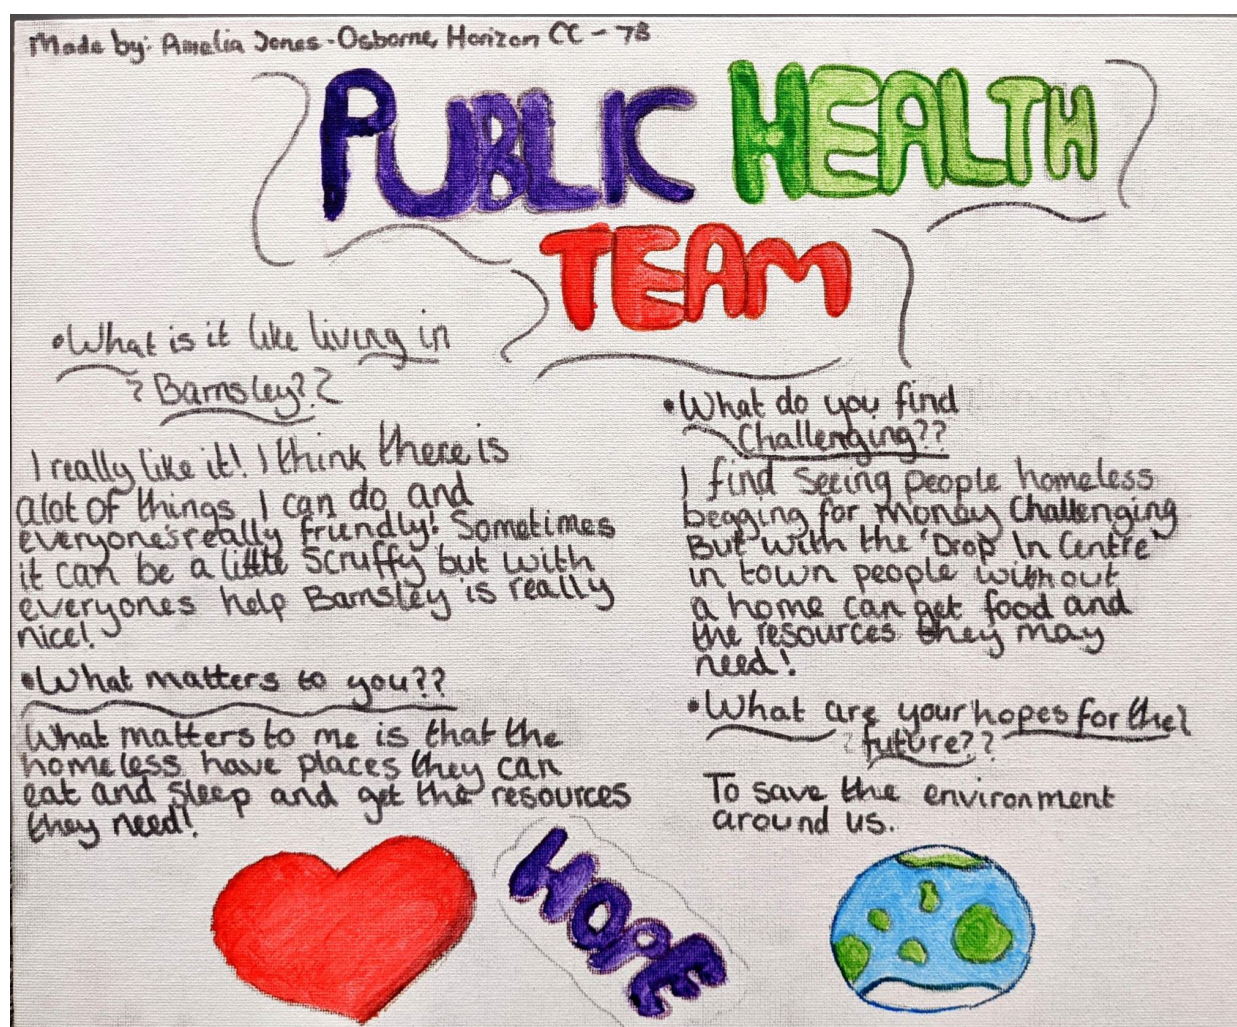 Made by: Amelia Jones-Osborne, Horizon CC - 7B
PUBLIC HEALTH
TEAM
•What is it like living in
Barnsley??
I really like it! I think there is
alot of things I can do and
everyone's really friendly! Sometimes
it can be a little scruffy but with
everyones help Barnsley is really
nice!
•What matters to you??
What matters to me is that the
homeless have places they can
eat and sleep and get the resources
they need!
•What do you find
Challenging??
I find seeing people homeless
begging for money Challenging
But with the 'Drop In Centre'
in town people without
a home can get food and
the resources they may
need!
•What are your hopes for the
future??
To save the environment
around us.
HOPE